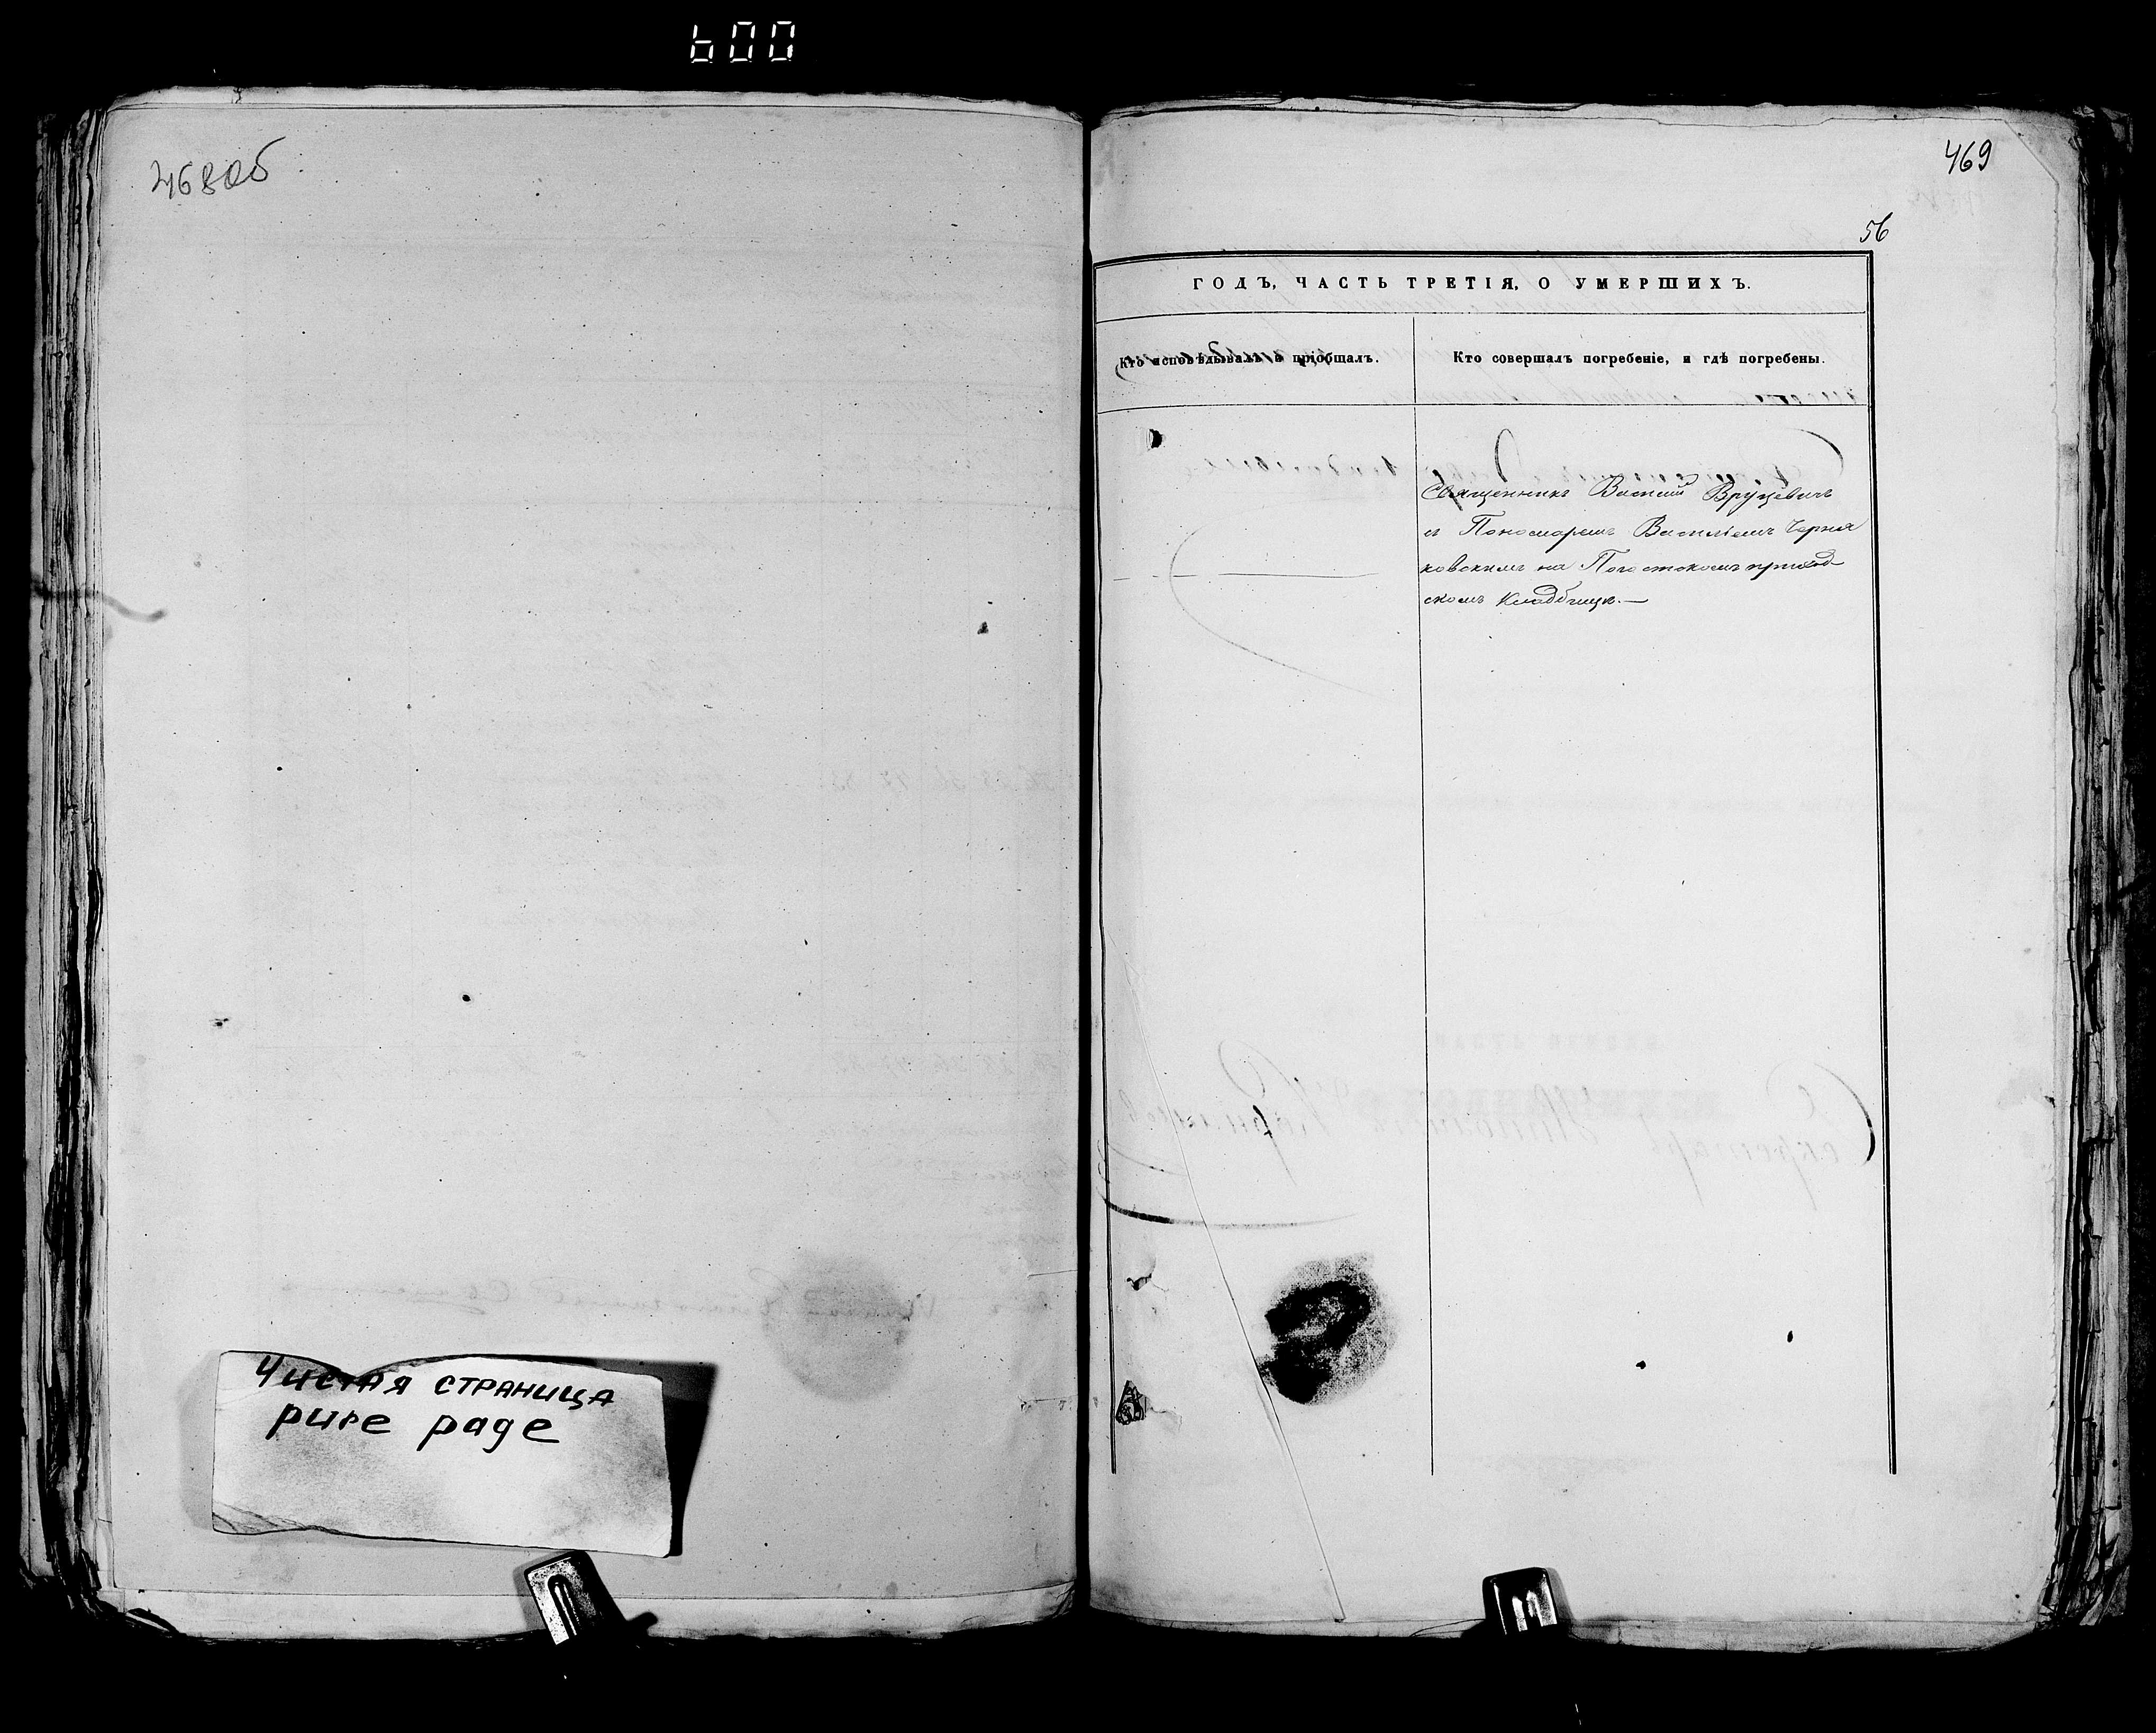 600
468об
469
56
ГОДЪ, ЧАСТЬ ТРЕТІЯ, О УМЕРШИХЪ.
Кто исповѣдывалъ и пріобщалъ.
Кто совершалъ погребеніе, и гдѣ погребены.
Священникъ Василій Вруцевичъ
съ Пономаремъ Василіемъ Черня
ковскимъ на Погостскомъ приход
скомъ кладбищѣ.—
Чистая страница
pure page